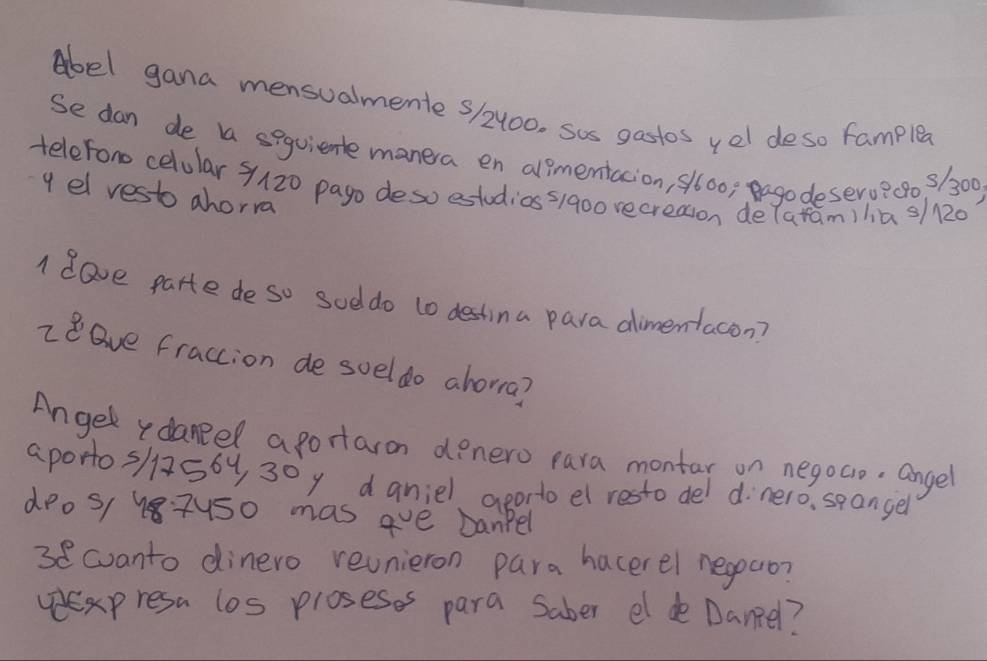 Abel gana mensualmente S/2400. Sus gastos y el de so familia
Se dan de la siguiente manera en alimentacion, S/600; Pago de servicio S/300;
telefono celular S/120 pago de so estudios S/900 recreacion de la familia S/120
y el resto ahorra
1 ¿Que parte de so sueldo lo destina para alimentacon?
2 ¿Que fraccion de sueldo ahorra?
Angel y daniel aportaron dinero para montar un negocio. Angel
aporto S/17564,30 y daniel aporto el resto del dinero. si angel
dio S/ 487450 mas que Daniel
3 ¿cuanto dinero reunieron para hacer el negocio?
4 ¿Expresa los prosesos para saber el de Daniel?